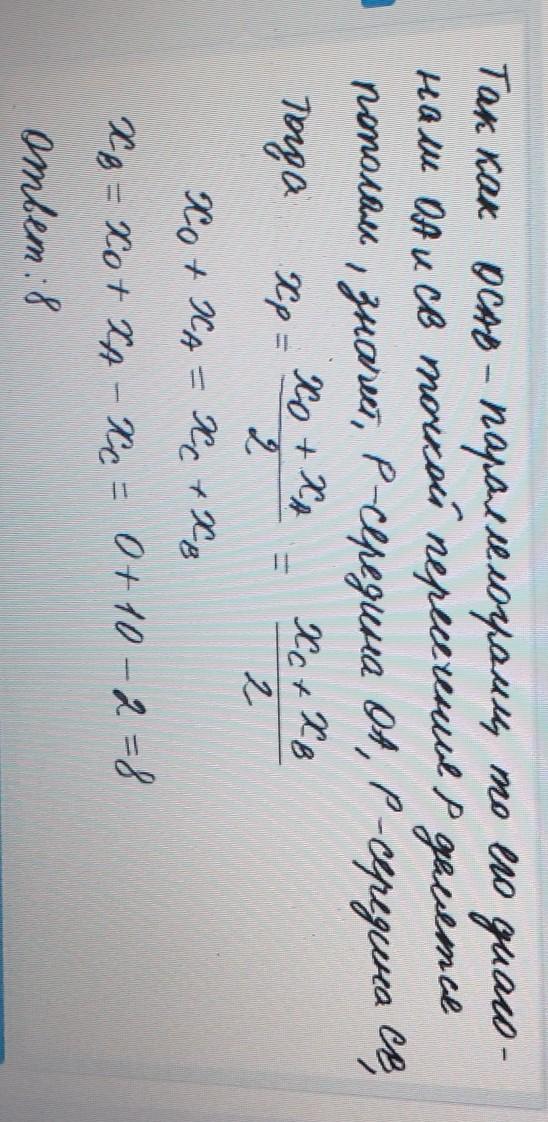 Так как ОСАВ - параллелограмм, то его диаго-
нали ОА и СВ точкой пересечения Р делятся
пополам, значит, Р-середина ОА, Р-середина СВ,
Тогда x_P = (x_O + x_A)/2 = (x_C + x_B)/2
x_O + x_A = x_C + x_B
x_B = x_O + x_A - x_C = 0 + 10 - 2 = 8
Ответ: 8